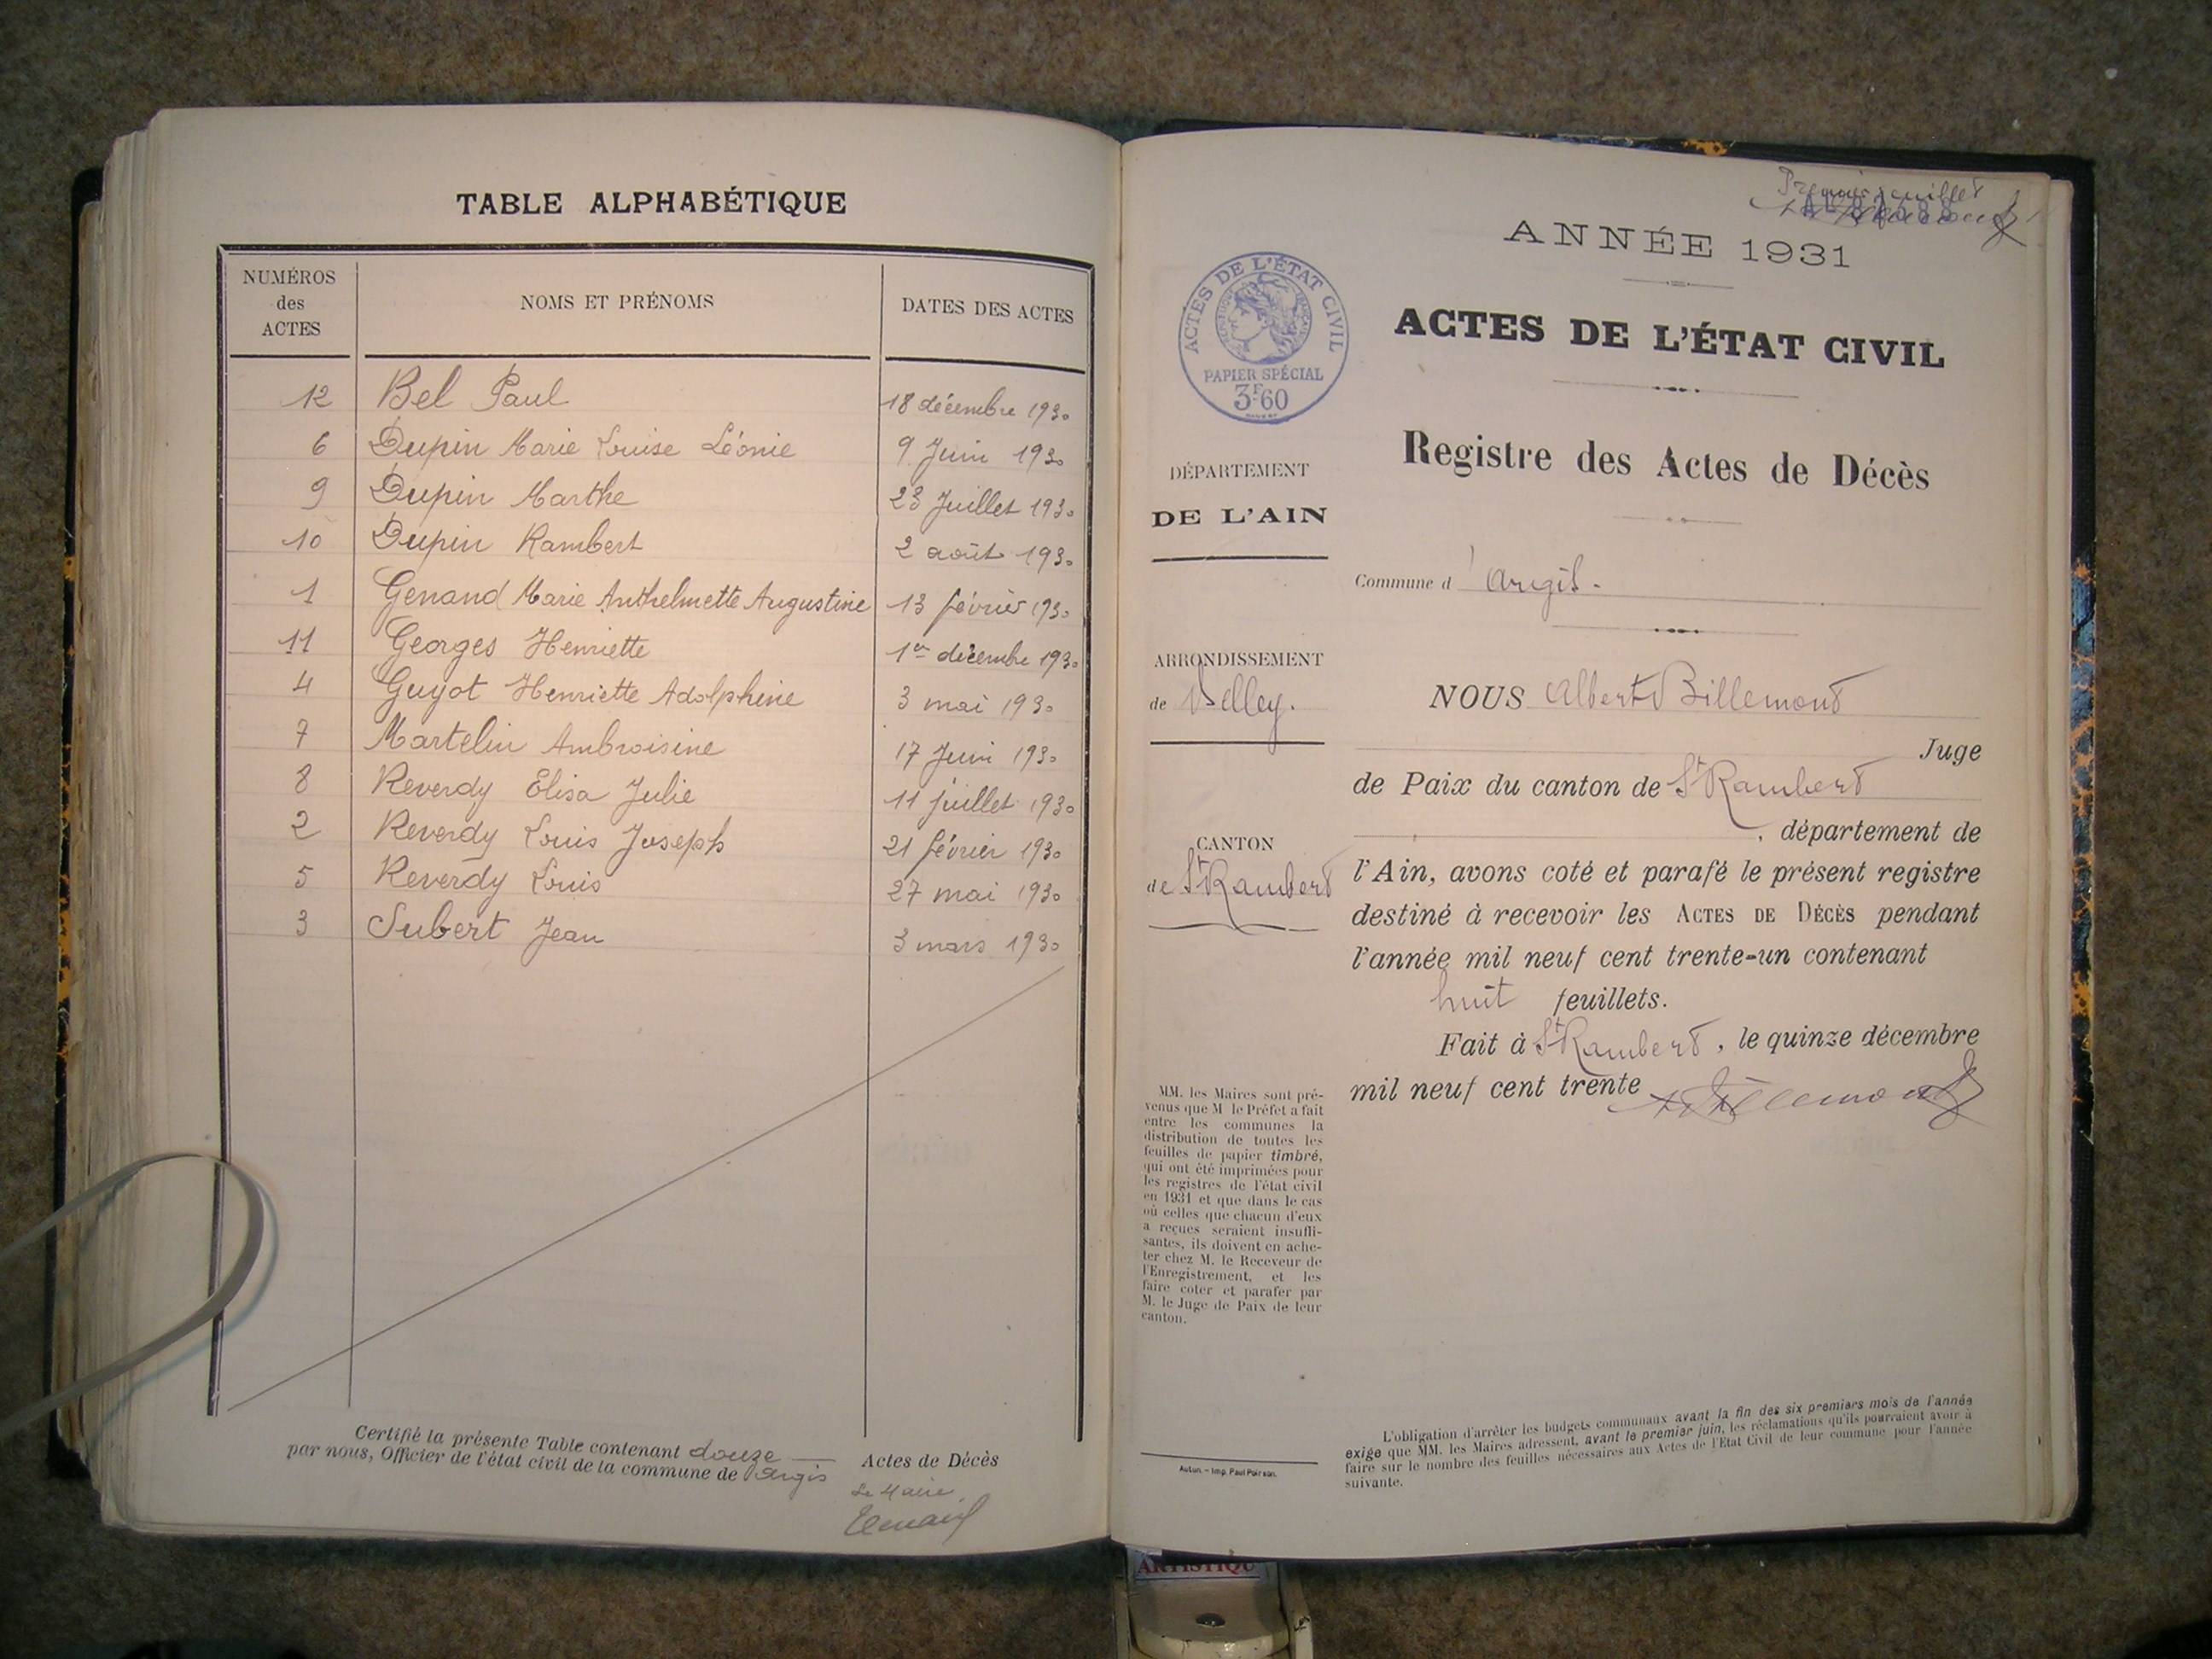 TABLE ALPHABÉTIQUE
NUMÉROS des ACTES NOMS ET PRÉNOMS DATES DES ACTES
12 Bel Paul 18 décembre 1930
6 Dupin Marie Louise Léonie 9 Juin 1930
9 Dupin Marthe 23 Juillet 1930
10 Dupin Rambert 2 août 1930
1 Genand Marie Anthelmette Augustine 13 février 1930
11 Georges Henriette 1er décembre 1930
4 Guyot Henriette Adolphine 3 mai 1930
7 Martelin Ambroisine 17 Juin 1930
8 Reverdy Elisa Julie 11 juillet 1930
2 Reverdy Louis Joseph 21 février 1930
5 Reverdy Louis 27 mai 1930
3 Subert Jean 3 mars 1930
Certifié la présente Table contenant douze Actes de Décès
par nous, Officier de l'état civil de la commune de Argis
Le Maire
Premier feuillet
ANNÉE 1931
ACTES DE L'ÉTAT CIVIL
PAPIER SPÉCIAL
3F60
ACTES DE L'ÉTAT CIVIL
Registre des Actes de Décès
DÉPARTEMENT
DE L'AIN
Commune d'Argis.
ARRONDISSEMENT
de Belley.
CANTON
de St Rambert
NOUS Albert Billemont
Juge
de Paix du canton de St Rambert
, département de
l'Ain, avons coté et parafé le présent registre
destiné à recevoir les ACTES DE DÉCÈS pendant
l'année mil neuf cent trente-un contenant
huit feuillets.
Fait à St Rambert, le quinze décembre
mil neuf cent trente
MM. les Maires sont pré-
venus que M le Préfet a fait
entre les communes la
distribution de toutes les
feuilles de papier timbré,
qui ont été imprimées pour
les registres de l'état civil
en 1931 et que dans le cas
où celles que chacun d'eux
a reçues seraient insuffi-
santes, ils doivent en ache-
ter chez M. le Receveur de
l'Enregistrement, et les
faire coter et parafer par
M. le Juge de Paix de leur
canton.
Autun. – Imp. Paul Poirson.
L'obligation d'arrêter les budgets communaux avant la fin des six premiers mois de l'année
exige que MM. les Maires adressent, avant le premier juin, les réclamations qu'ils pourraient avoir à
faire sur le nombre des feuilles nécessaires aux Actes de l'Etat Civil de leur commune pour l'année
suivante.
ARTISTIQU